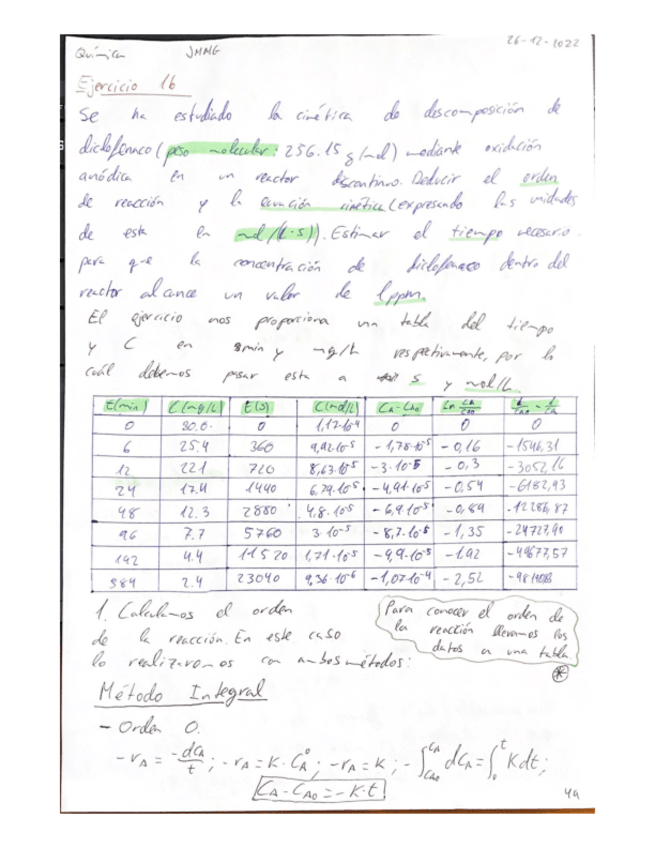 26-12-2022
Química JMMG
Ejercicio 16
Se ha estudiado la cinética de descomposición de
diclofenaco (peso molecular: 256.15 g/mol) mediante oxidación
anódica en un reactor discontinuo. Deducir el orden
de reacción y la ecuación cinética (expresando las unidades
de esta en mol/(L·s)). Estimar el tiempo necesario
para que la concentración de diclofenaco dentro del
reactor alcance un valor de 1ppm.
El ejercicio nos proporciona una tabla del tiempo
y C en min y mg/L respectivamente, por lo
cuál debemos pasar esta a s y mol/L.
t(min) C(mg/L) t(s) C(mol/L) CA-CA0 Ln CA/CA0 1/CA0 - 1/CA
0 30.0 0 1,17·10-4 0 0 0
6 25.4 360 9,92·10-5 -1,78·10-5 -0,16 -1546,31
12 22.1 720 8,63·10-5 -3·10-5 -0,3 -3052,16
24 17.4 1440 6,79·10-5 -4,91·10-5 -0,54 -6182,93
48 12.3 2880 4,8·10-5 -6,9·10-5 -0,89 -12286,87
96 7.7 5760 3·10-5 -8,7·10-5 -1,35 -24727,90
192 4.4 11520 1,71·10-5 -9,9·10-5 -1,92 -49677,57
384 2.4 23040 9,36·10-6 -1,07·10-4 -2,52
1. Calculamos el orden
de la reacción. En este caso
lo realizaremos con ambos métodos:
Para conocer el orden de
la reacción llevamos los
datos a una tabla.
Método Integral
- Orden 0.
-rA = -dCA/t ; -rA = K·CA⁰ ; -rA = K ; -∫CA0 CA dCA = ∫0 t Kdt;
CA - CA0 = -K·t
49